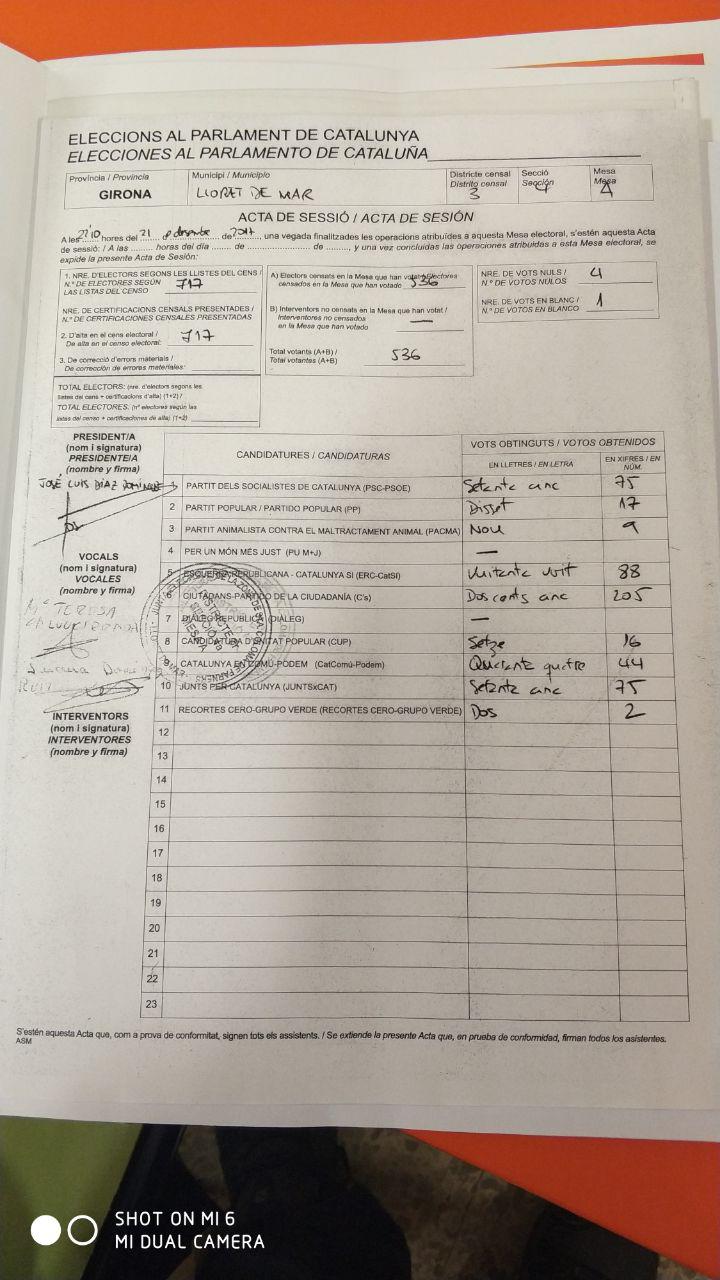 ELECCIONS AL PARLAMENT DE CATALUNYA
ELECCIONES AL PARLAMENTO DE CATALUÑA
Província / Provincia
GIRONA
Municipi / Municipio
LLORET DE MAR
Districte censal
Distrito censal
3
Secció
Sección
Mesa
Mesa
A
ACTA DE SESSIÓ / ACTA DE SESIÓN
A les 22'10 hores del 21 de desembre de 2017, una vegada finalitzades les operacions atribuïdes a aquesta Mesa electoral, s'estén aquesta Acta
de sessió: / A las ......... horas del día ....... de ................. de ........, y una vez concluidas las operaciones atribuidas a esta Mesa electoral, se
expide la presente Acta de Sesión:
1. NRE. D'ELECTORS SEGONS LES LLISTES DEL CENS /
N.º DE ELECTORES SEGÚN
LAS LISTAS DEL CENSO
717
NRE. DE CERTIFICACIONS CENSALS PRESENTADES /
N.º DE CERTIFICACIONES CENSALES PRESENTADAS
2. D'alta en el cens electoral /
De alta en el censo electoral:
717
3. De correcció d'errors materials /
De corrección de errores materiales:
TOTAL ELECTORS: (nre. d'electors segons les
llistes del cens + certificacions d'alta) (1+2) /
TOTAL ELECTORES: (nº electores según las
listas del censo + certificaciones de alta) (1+2)
A) Electors censats en la Mesa que han votat / Electores
censados en la Mesa que han votado
536
B) Interventors no censats en la Mesa que han votat /
Interventores no censados
en la Mesa que han votado
—
Total votants (A+B) /
Total votantes (A+B)
536
NRE. DE VOTS NULS /
N.º DE VOTOS NULOS
4
NRE. DE VOTS EN BLANC /
N.º DE VOTOS EN BLANCO
1
PRESIDENT/A
(nom i signatura)
PRESIDENTE/A
(nombre y firma)
JOSÉ LUIS DÍAZ DOMÍNGUEZ
VOCALS
(nom i signatura)
VOCALES
(nombre y firma)
Mª TERESA
INTERVENTORS
(nom i signatura)
INTERVENTORES
(nombre y firma)
CANDIDATURES / CANDIDATURAS
VOTS OBTINGUTS / VOTOS OBTENIDOS
EN LLETRES / EN LETRA
EN XIFRES / EN NÚM.
1 PARTIT DELS SOCIALISTES DE CATALUNYA (PSC-PSOE) Setanta cinc 75
2 PARTIT POPULAR / PARTIDO POPULAR (PP) Disset 17
3 PARTIT ANIMALISTA CONTRA EL MALTRACTAMENT ANIMAL (PACMA) Nou 9
4 PER UN MÓN MÉS JUST (PU M+J) —
5 ESQUERRA REPUBLICANA - CATALUNYA SI (ERC-CatSI) Vuitanta vuit 88
6 CIUTADANS-PARTIDO DE LA CIUDADANÍA (C's) Doscents cinc 205
7 DIÀLEG REPUBLICÀ (DIÀLEG) —
8 CANDIDATURA D'UNITAT POPULAR (CUP) Setze 16
9 CATALUNYA EN COMÚ-PODEM (CatComú-Podem) Quaranta quatre 44
10 JUNTS PER CATALUNYA (JUNTSxCAT) Setanta cinc 75
11 RECORTES CERO-GRUPO VERDE (RECORTES CERO-GRUPO VERDE) Dos 2
12
13
14
15
16
17
18
19
20
21
22
23
S'estén aquesta Acta que, com a prova de conformitat, signen tots els assistents. / Se extiende la presente Acta que, en prueba de conformidad, firman todos los asistentes.
ASM
SHOT ON MI 6
MI DUAL CAMERA